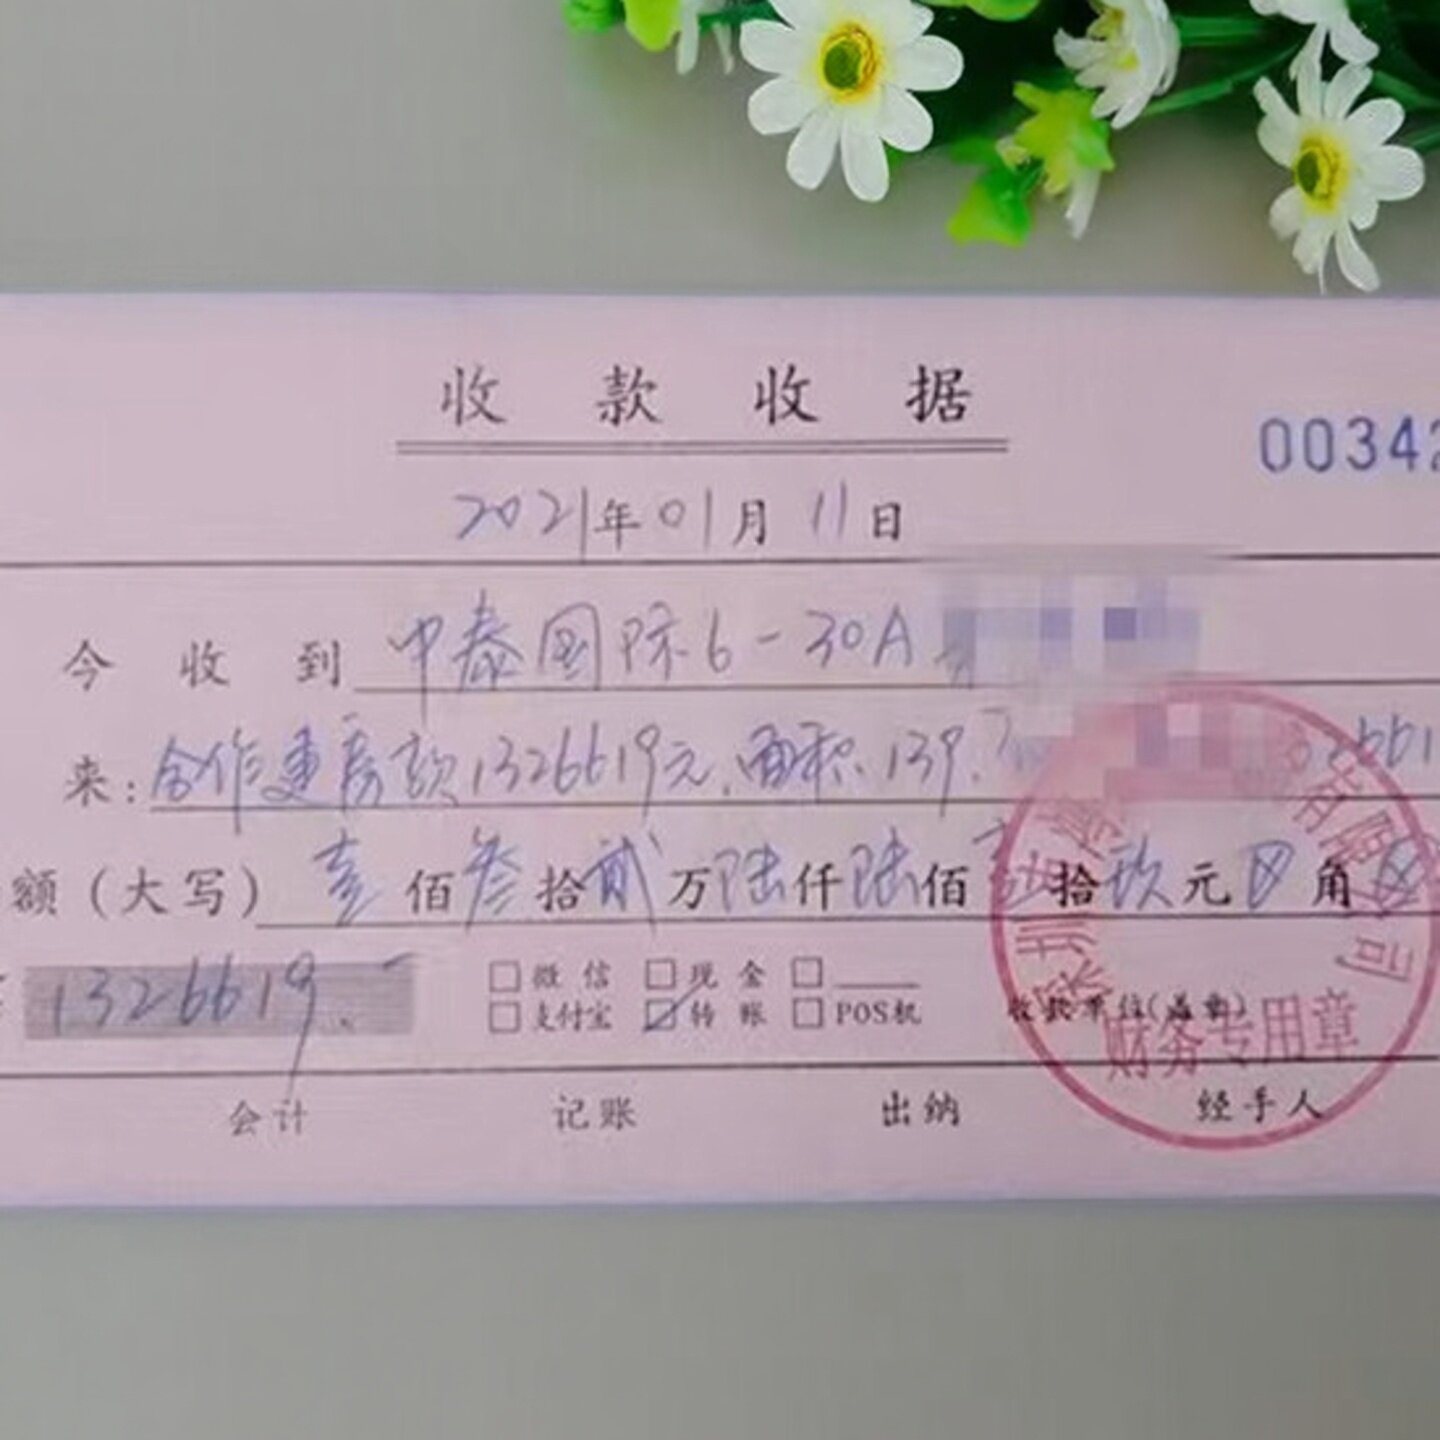 收款收据
00342
2021年01月11日
今收到 中泰国际6-30A
来：合作建房款1326619元，面积139.7
额（大写）壹佰叁拾贰万陆仟陆佰 拾玖元 角
1326619.
微信 现金
支付宝 转账 POS机
收款单位（盖章）
深圳 有限公司
财务专用章
会计 记账 出纳 经手人